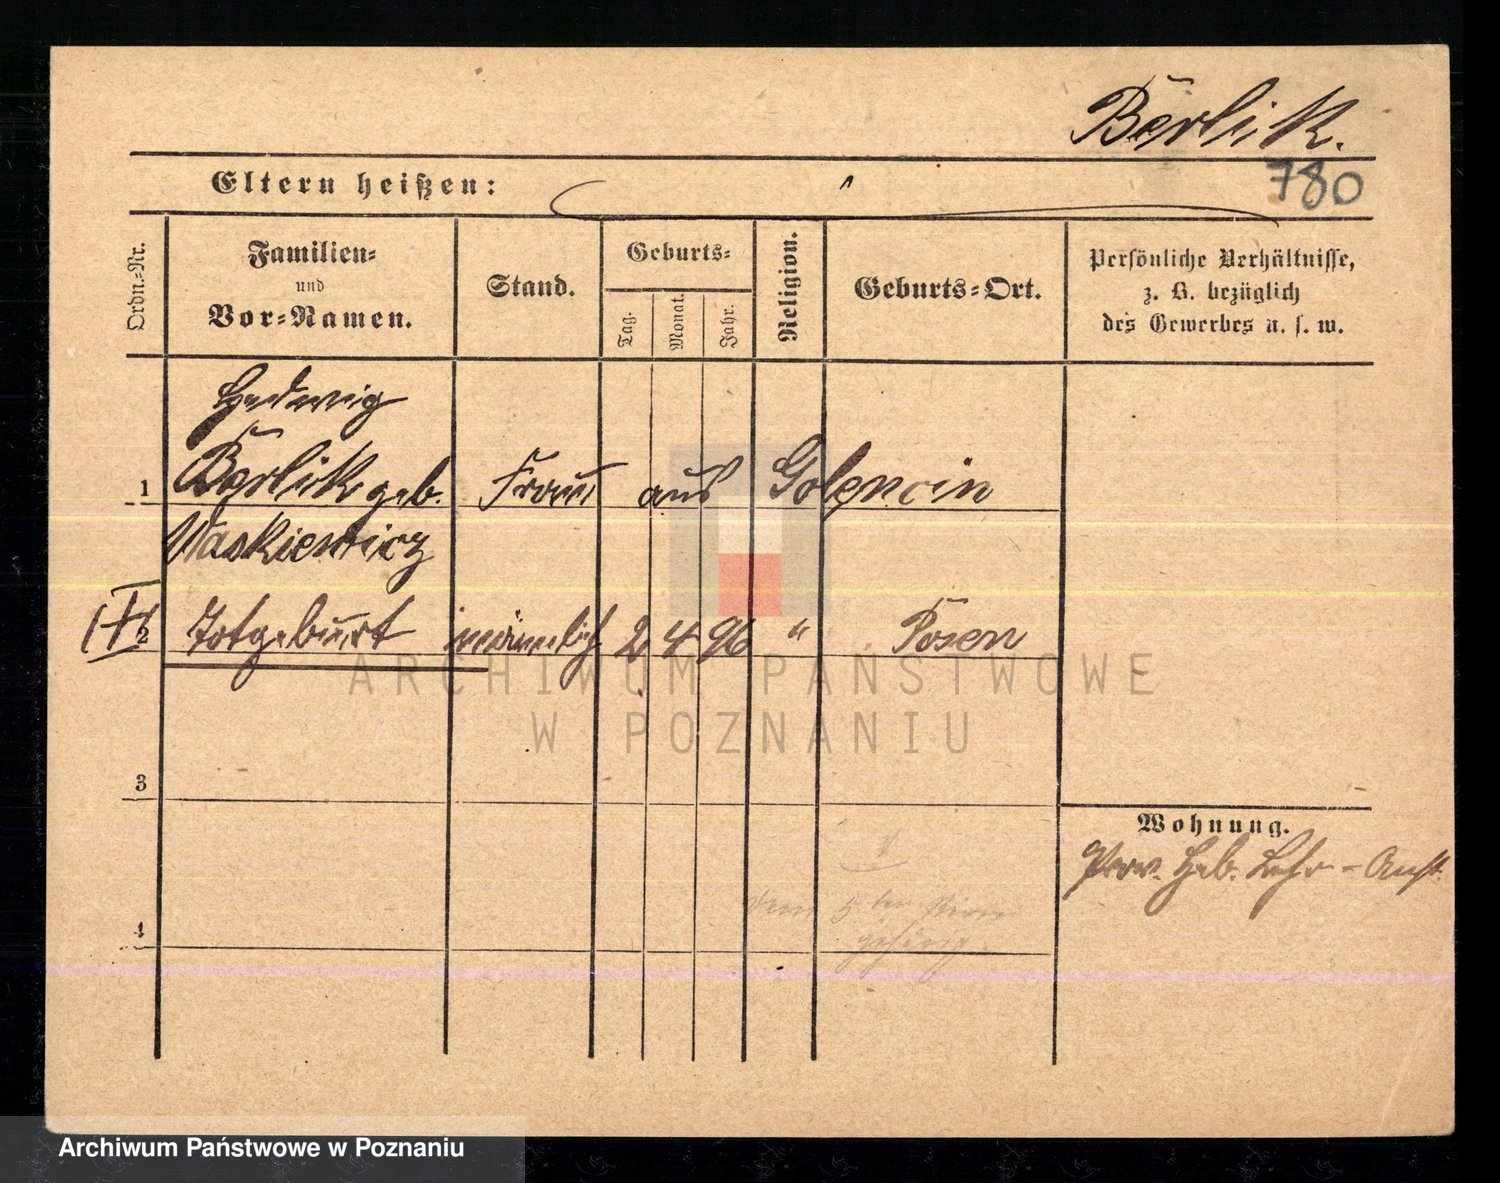 Berlik.
780
Eltern heißen:
Ordn.=Nr.
Familien=
und
Vor=Namen.
Stand.
Geburts=
Tag.
Monat.
Jahr.
Religion.
Geburts=Ort.
Persönliche Verhältnisse,
z. B. bezüglich
des Gewerbes u. s. w.
Hedwig
1 Berlik geb. Frau aus Golencin
Waskiewicz
2 Totgeburt männlich 2 4 96 " Posen
ARCHIWUM PAŃSTWOWE
W POZNANIU
3
Wohnung.
Prov. Heb. Lehr-Anst.
4
Archiwum Państwowe w Poznaniu